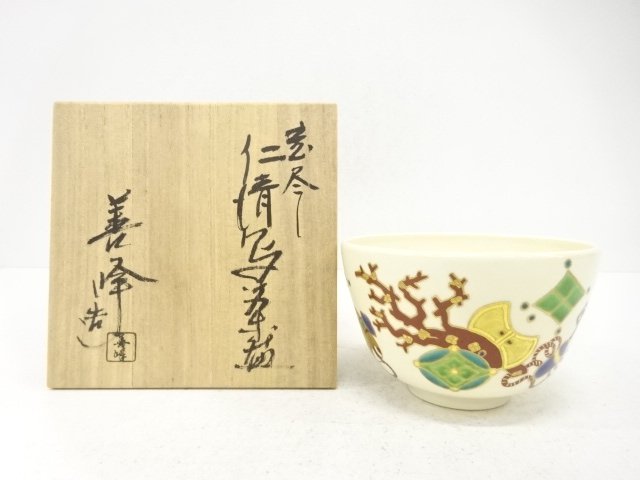 宝尽し
仁清写茶碗
善峰造
善峰